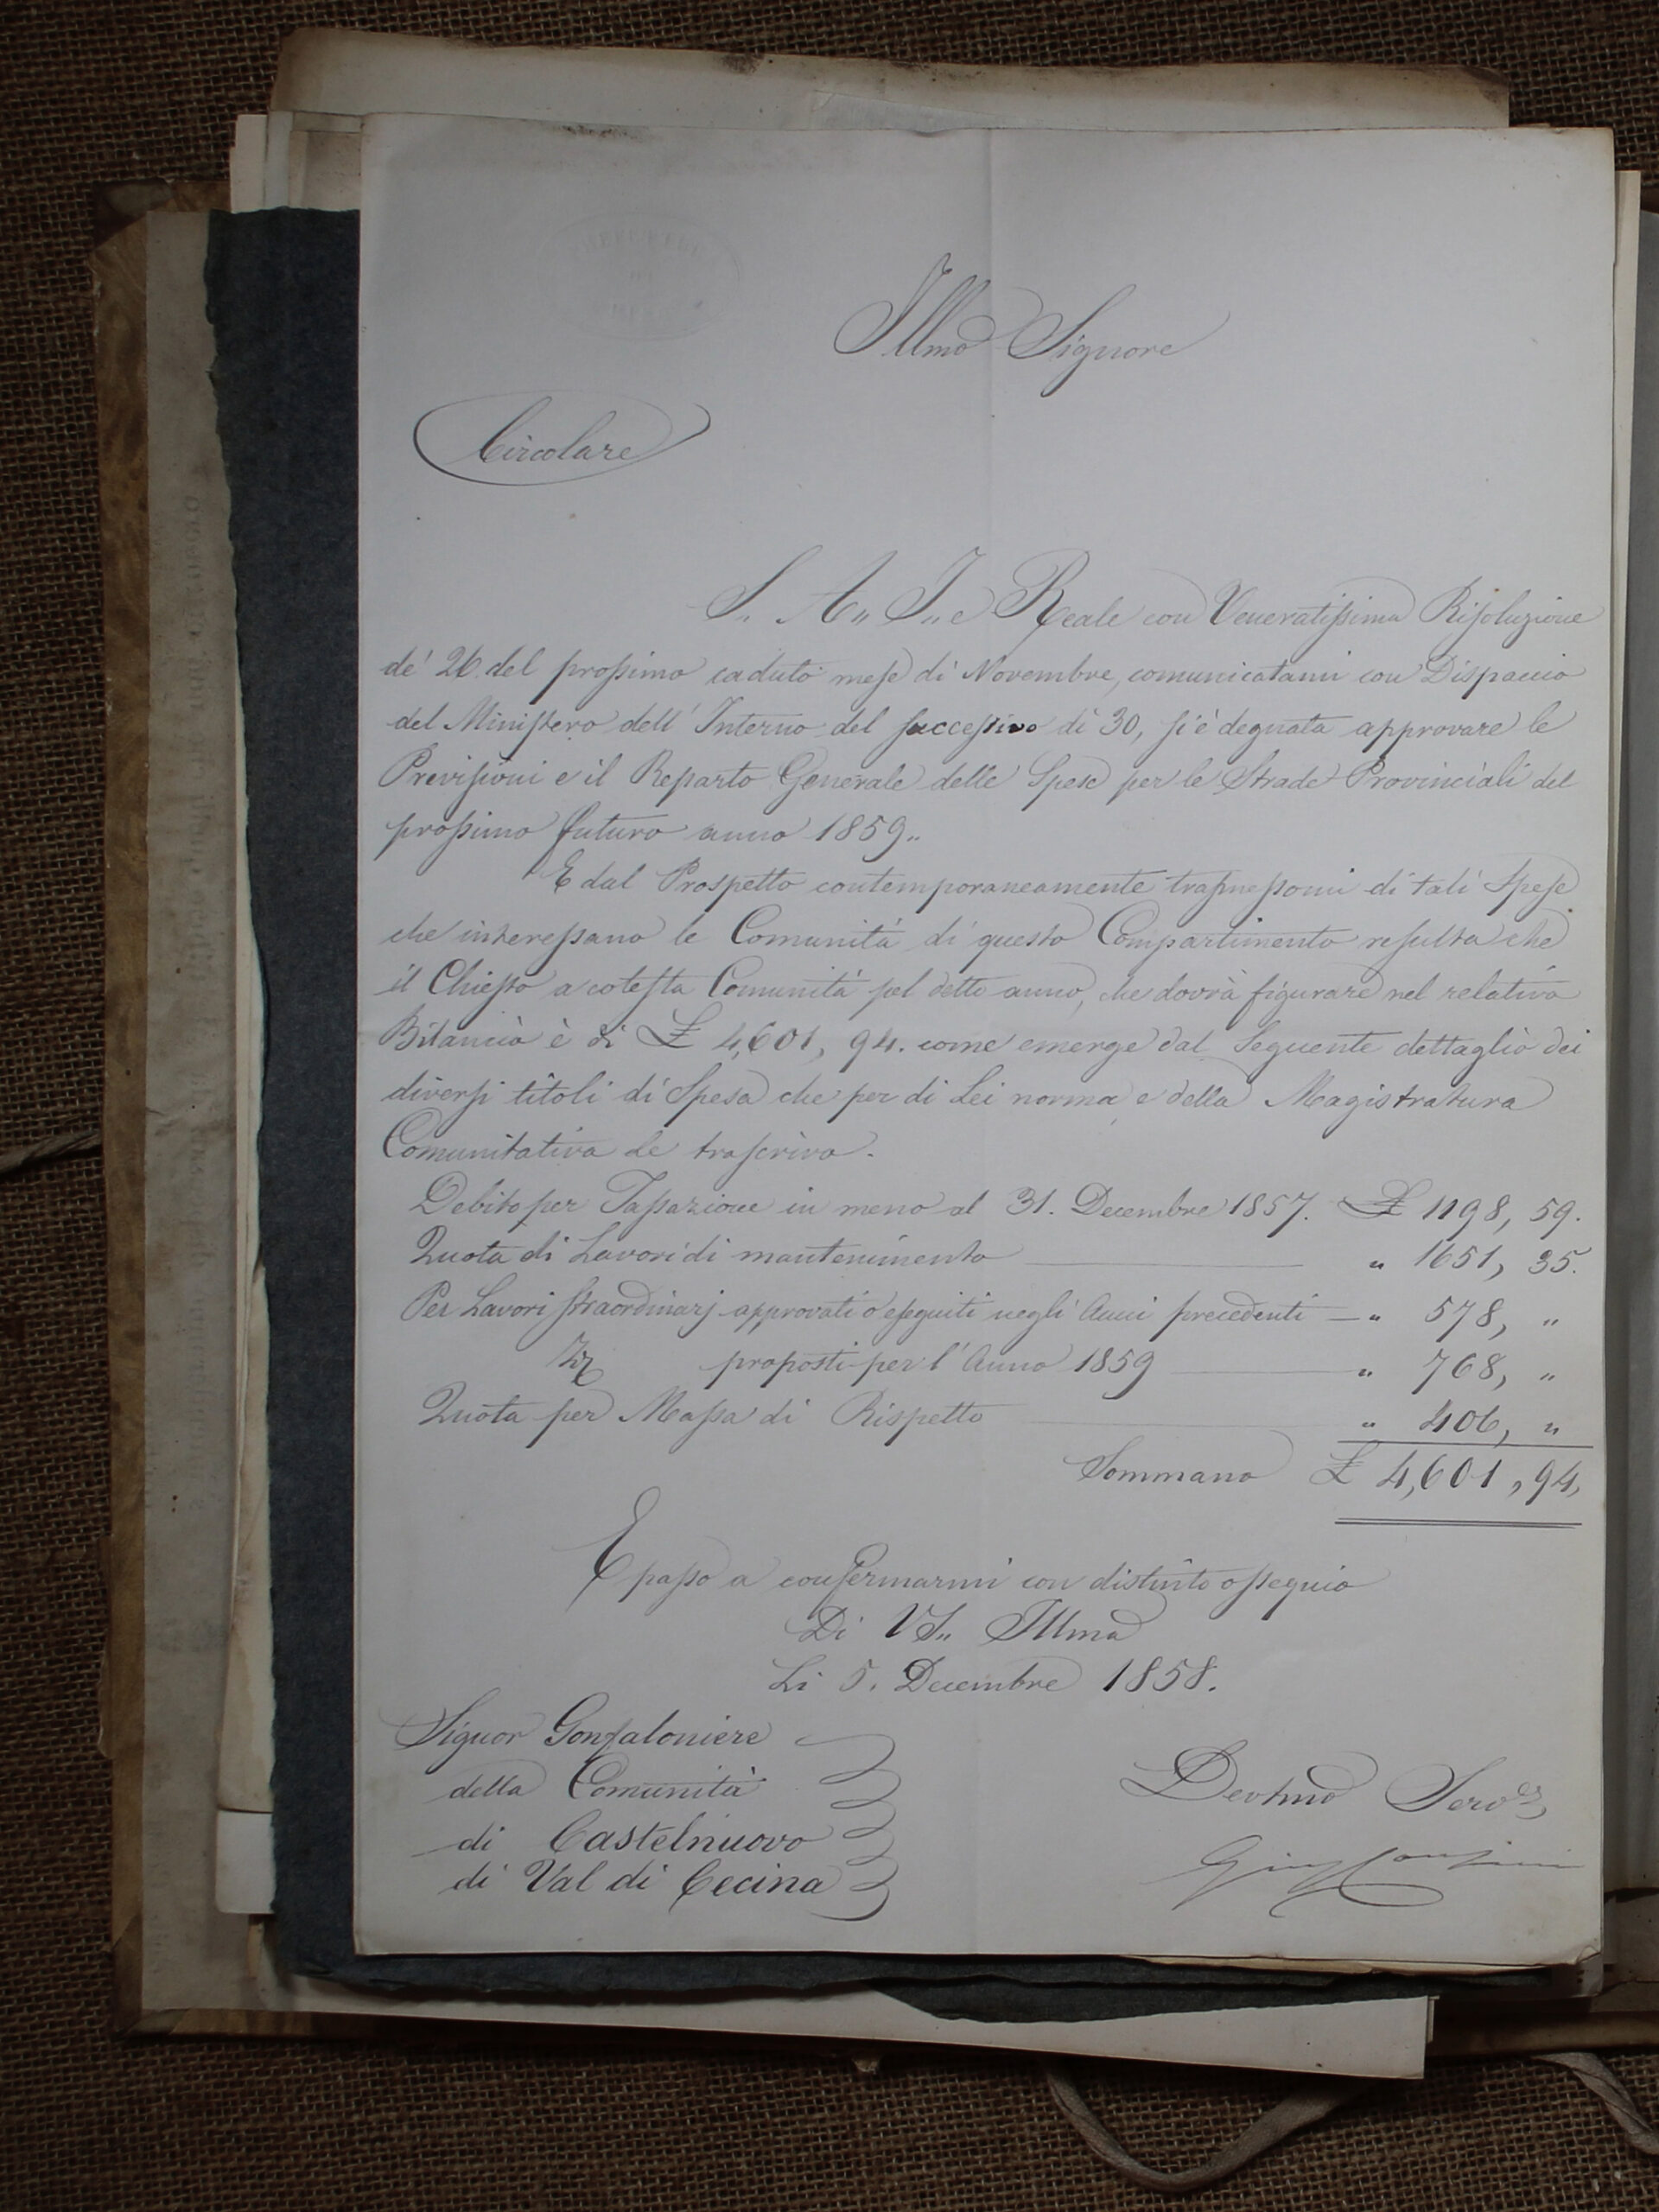 Illmo Signore
Circolare
S. A.. I.. e Reale con Veneratissima Risoluzione
de' 26. del prossimo caduto mese di Novembre, comunicatami con Dispaccio
del Ministero dell' Interno del successivo dì 30, si è degnata approvare le
Previsioni e il Reparto Generale delle Spese per le Strade Provinciali del
prossimo futuro anno 1859..
E dal Prospetto contemporaneamente trasmessomi di tali Spese
che interessano le Comunità di questo Compartimento resulta che
il Chiesto a cotesta Comunità pel detto anno, che dovrà figurare nel relativo
Bilancio è di £ 4,601, 94. come emerge dal seguente dettaglio dei
diversi titoli di Spesa che per di Lei norma e della Magistratura
Comunitativa Le trascrivo.
Debito per Tassazione in meno al 31. Decembre 1857. £ 1198, 59.
Quota di Lavori di mantenimento " 1651, 35.
Per Lavori straordinarj approvati o eseguiti negli Anni precedenti — " 578, "
proposti per l' Anno 1859 " 768, "
Quota per Massa di Rispetto " 406, "
Sommano £ 4,601, 94,
E passo a confermarmi con distinto ossequio
Di VS.. Illma
Li 5. Decembre 1858.
Signor Gonfaloniere
della Comunità
di Castelnuovo
di Val di Cecina
Devtmo Servre